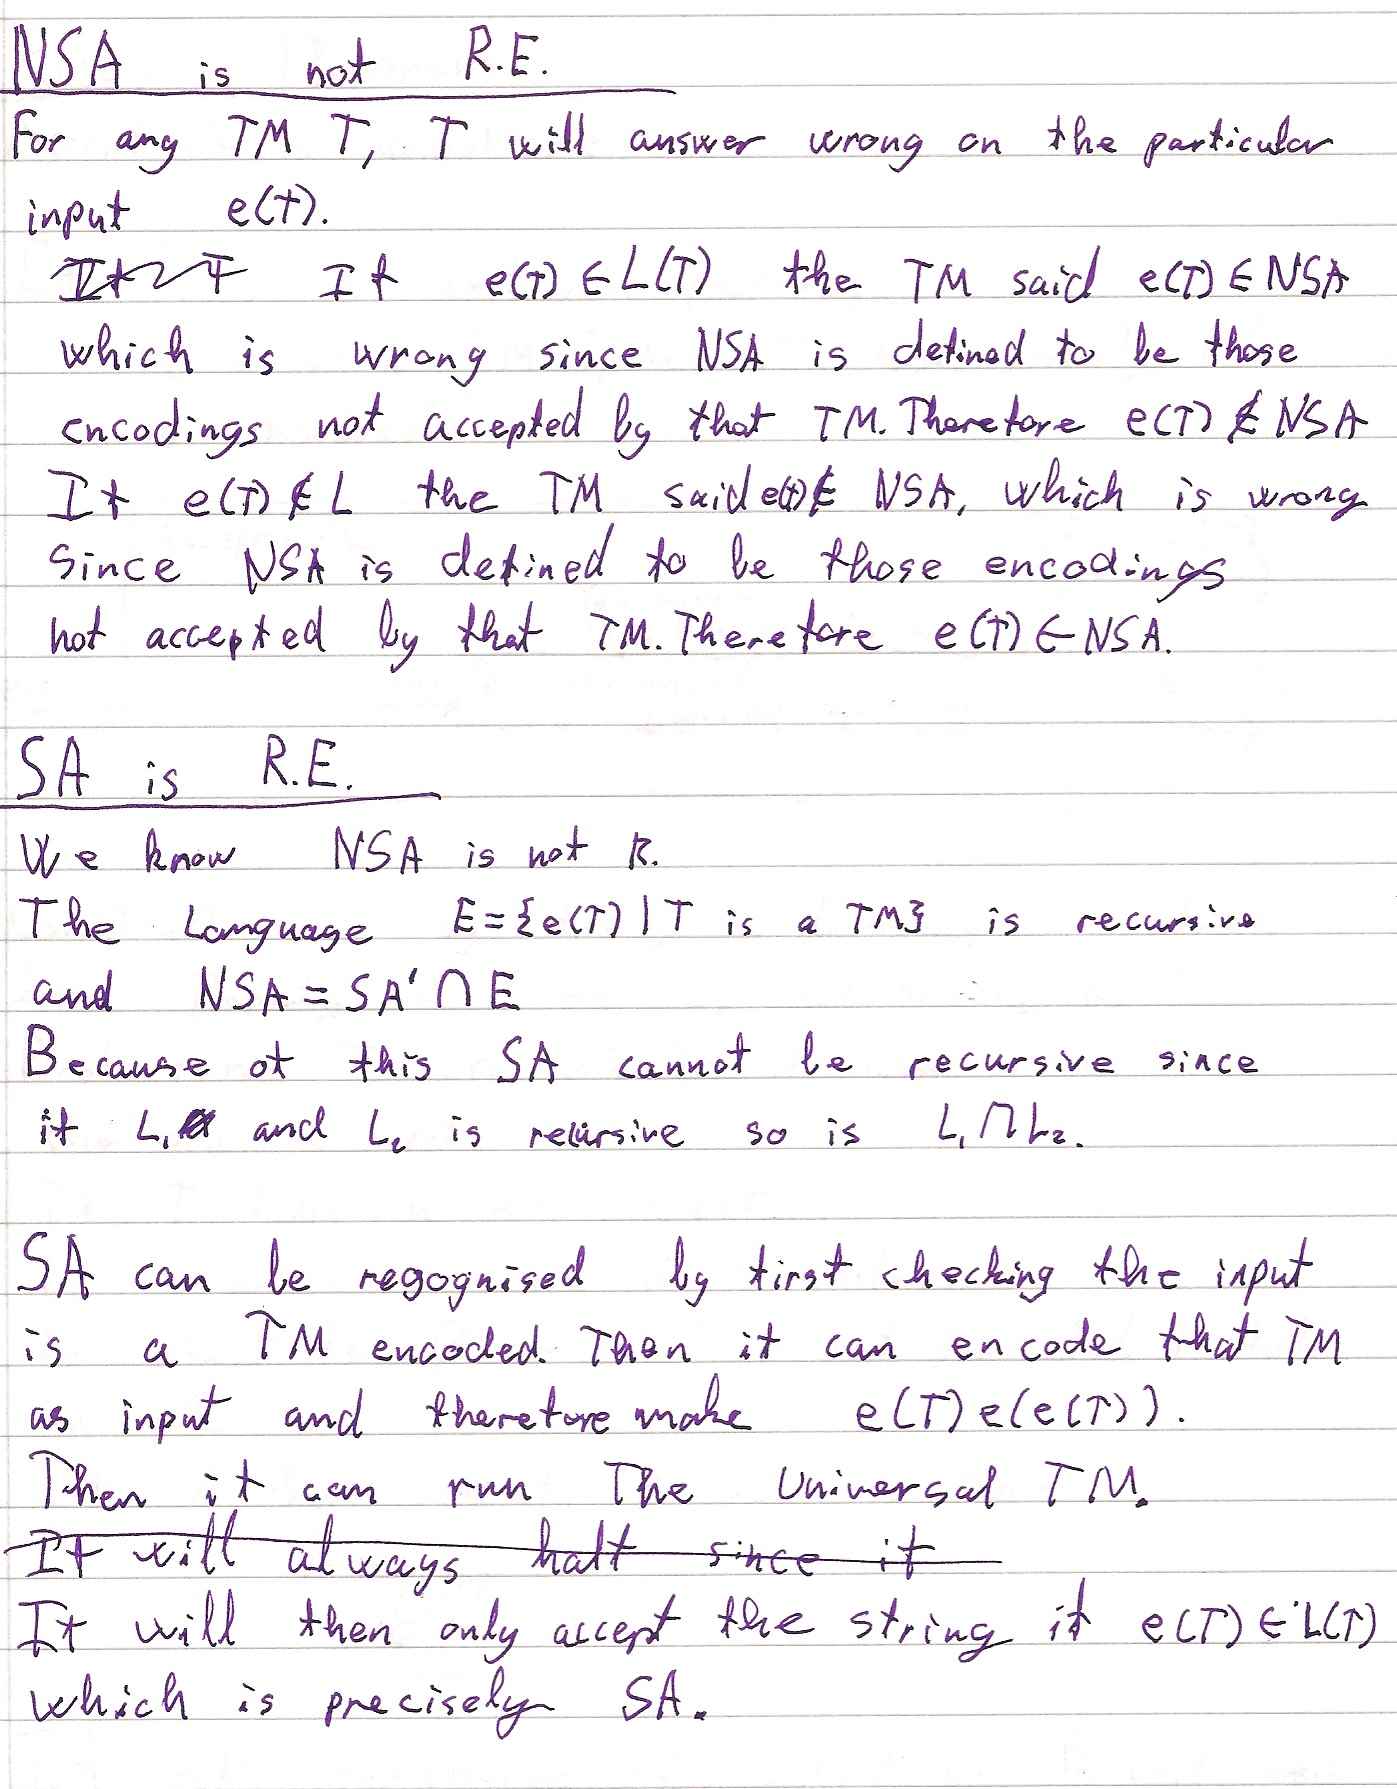 NSA is not R.E.
For any TM T, T will answer wrong on the particular
input e(T).
If e(T) ∈ L(T) the TM said e(T) ∈ NSA
which is wrong since NSA is defined to be those
encodings not accepted by that TM. Therefore e(T) ∉ NSA
If e(T) ∉ L the TM said e(T) ∉ NSA, which is wrong
since NSA is defined to be those encodings
not accepted by that TM. Therefore e(T) ∈ NSA.
SA is R.E.
We know NSA is not R.
The Language E = {e(T) | T is a TM} is recursive
and NSA = SA' ∩ E
Because of this SA cannot be recursive since
if L₁ and L₂ is recursive so is L₁ ∩ L₂.
SA can be regognised by first checking the input
is a TM encoded. Then it can encode that TM
as input and therefore make e(T)e(e(T)).
Then it can run The Universal TM.
It will always halt since it
It will then only accept the string if e(T) ∈ L(T)
which is precisely SA.